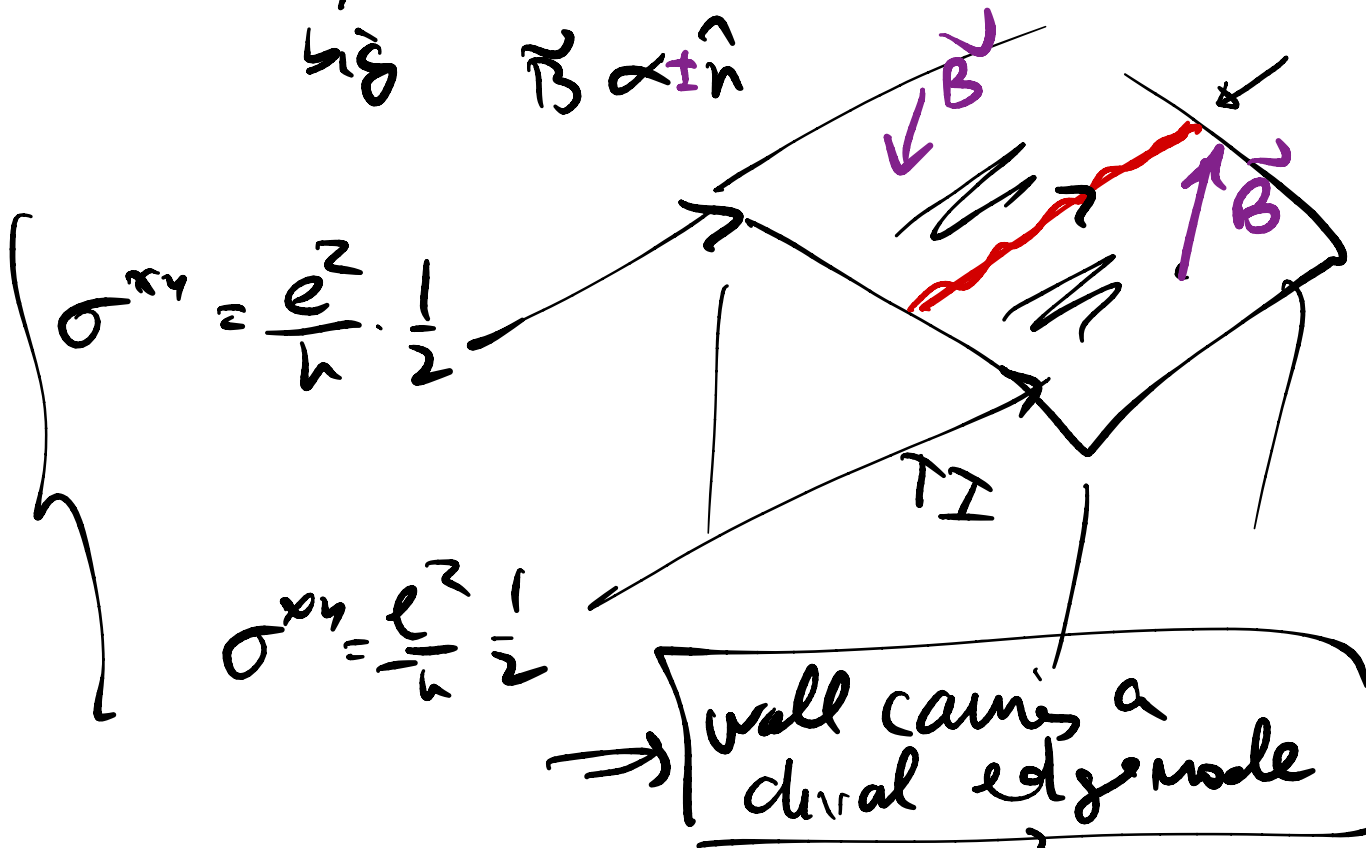 big B⃗ ∝ ± n̂
B⃗
B⃗
σ^{xy} = e²/h · 1/2
TI
σ^{xy} = e²/h 1/2
⇒ wall carries a
chiral edge mode